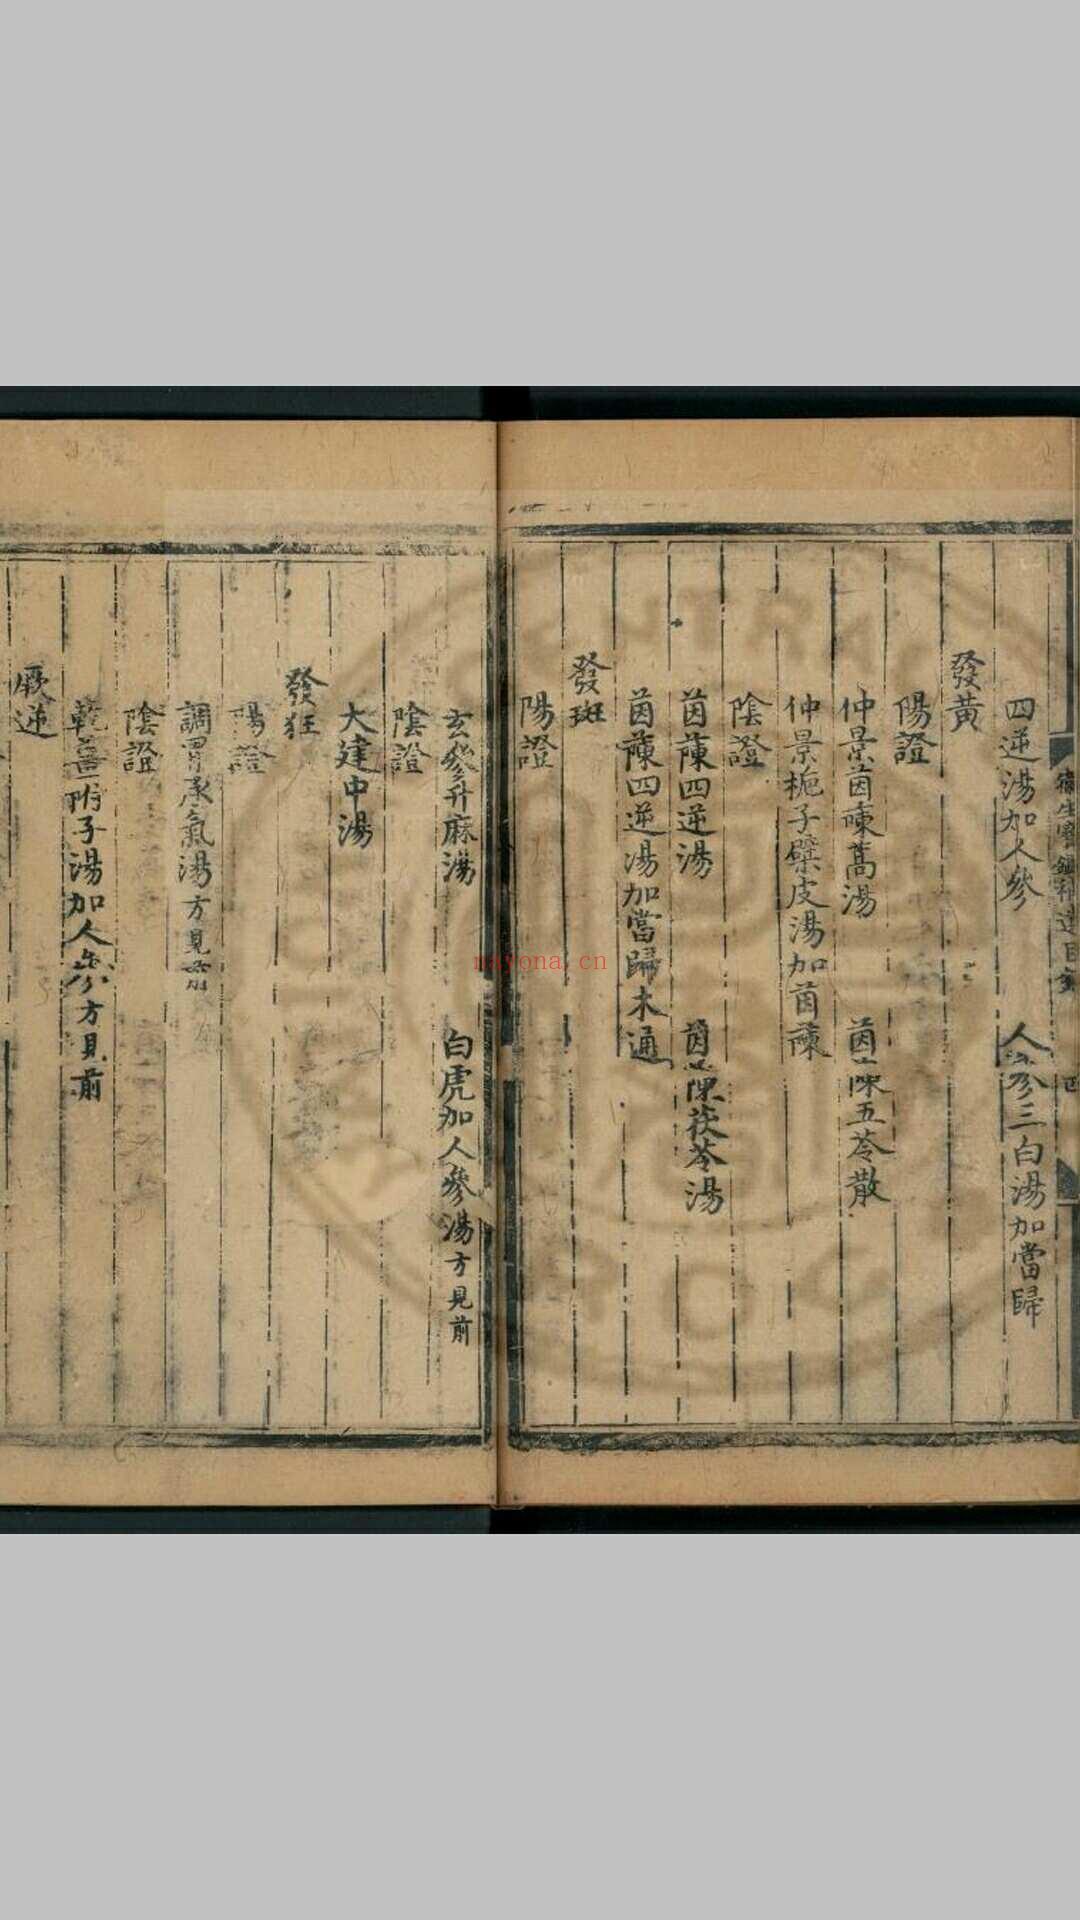 四逆湯加人參 人參三白湯加當歸
發黃
陽證
仲景茵蔯蒿湯 茵蔯五苓散
仲景梔子蘗皮湯加茵蔯
陰證
茵蔯四逆湯 茵蔯茯苓湯
茵蔯四逆湯加當歸木通
發斑
陽證
玄參升麻湯 白虎加人參湯方見前
陰證
大建中湯
發狂
陽證
調胃承氣湯方見前
陰證
乾薑附子湯加人參方見前
厥逆
nayona.cn